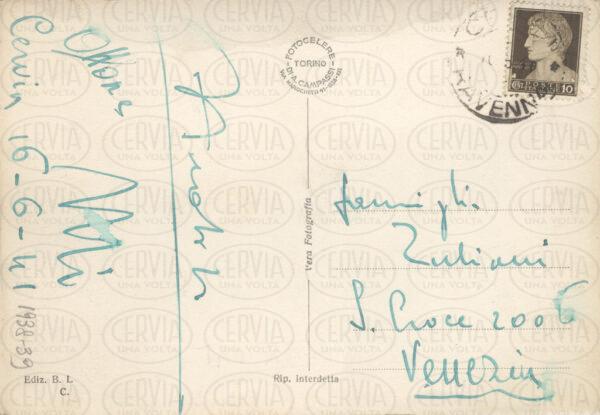 Cervia 16-6-41
1938-39
FOTOCELERE
TORINO
DI A. CAMPASSI
Vera Fotografia
RAVENNA
10
famiglia
Zuliani
S. Croce 2006
Venezia
Ediz. B. I.
C.
Rip. interdetta
CERVIA
UNA VOLTA